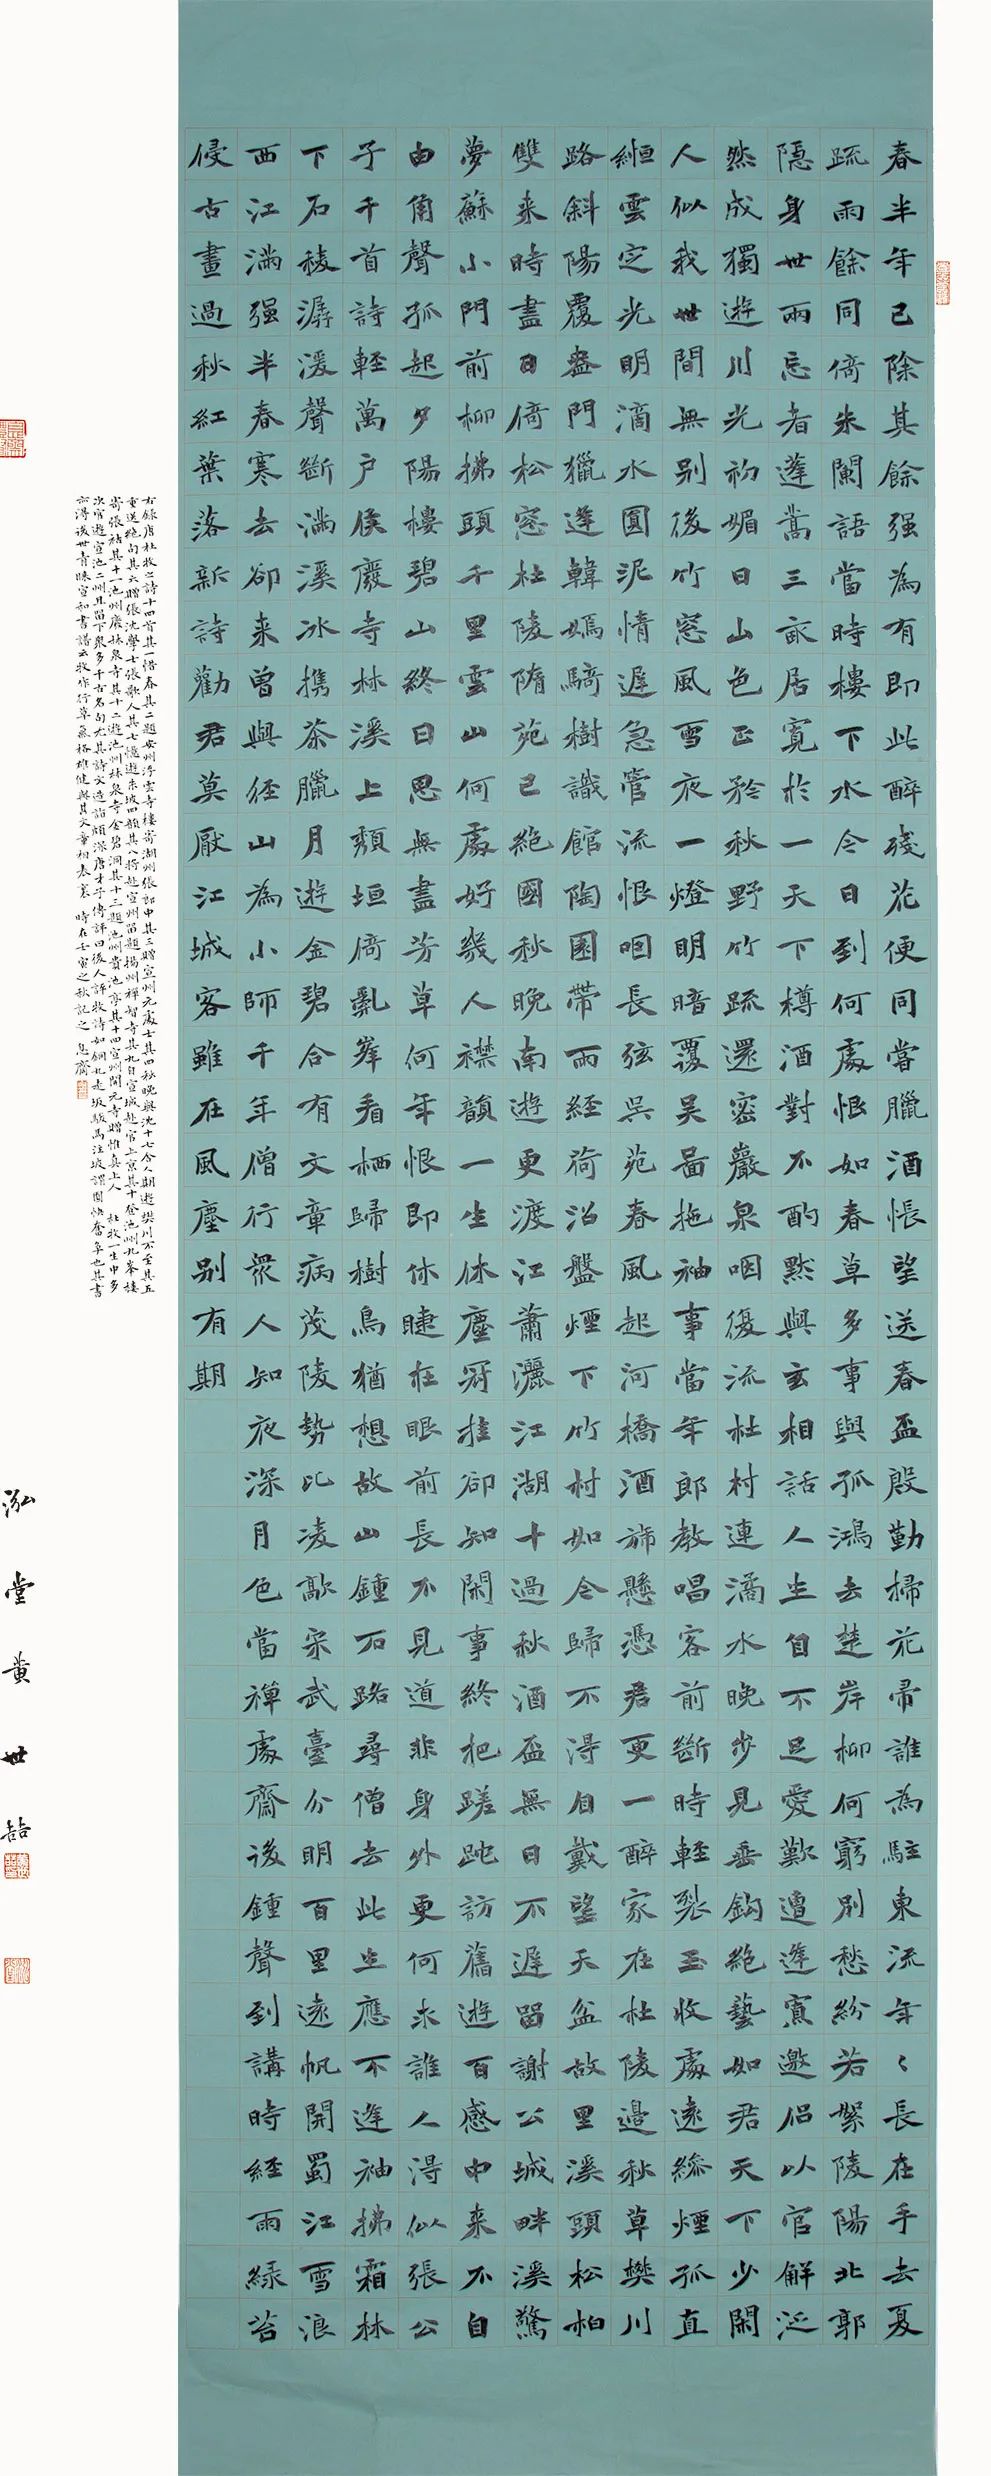 春半年已除其餘强為有即此醉殘花便同嘗臘酒悵望送春盃殷勤掃花帚誰為駐東流年〻長在手去夏
疏雨餘同倚朱闌語當時樓下水今日到何處恨如春草多事與孤鴻去楚岸柳何窮別愁紛若絮陵陽北郭
隱身世兩忘者蓬蒿三畝居寬於一天下樽酒對不酌默與玄相話人生自不足愛歎遭逢寡邀侶以官解泛
然成獨遊川光初媚日山色正矜秋野竹疏還密巖泉咽復流杜村連潏水晚步見垂鉤絕藝如君天下少閑
人似我世間無別後竹窓風雪夜一燈明暗覆吴圖拖袖事當年郎教唱客前斷時輕裂玉收處遠繰煙孤直
縆雲定光明滴水圓泥情遲急管流恨咽長弦吳苑春風起河橋酒旆懸憑君更一醉家在杜陵邊秋草樊川
路斜陽覆盎門獵逢韓嫣騎樹識館陶園帶雨經荷沼盤煙下竹村如今歸不得自戴望天盆故里溪頭松柏
雙来時盡日倚松窓杜陵隋苑已絕國秋晚南遊更渡江蕭灑江湖十過秋酒盃無日不遲留謝公城畔溪驚
夢蘇小門前柳拂頭千里雲山何處好幾人襟韻一生休塵冠挂卻知閑事終把蹉跎訪舊遊百感中来不自
由角聲孤起夕陽樓碧山終日思無盡芳草何年恨即休睫在眼前長不見道非身外更何求誰人得似張公
子千首詩輕萬戶侯廢寺林溪上頹垣倚亂峯看栖歸樹鳥猶想故山鍾石路尋僧去此生應不逢袖拂霜林
下石稜潺湲聲斷滿溪冰携茶臘月遊金碧合有文章病茂陵勢比凌歊宋武臺分明百里遠帆開蜀江雪浪
西江滿强半春寒去卻来曾與徑山為小師千年僧行眾人知夜深月色當禪處齋後鍾聲到講時經雨綠苔
侵古畫過秋紅葉落新詩勸君莫厭江城客雖在風塵別有期
右錄唐杜牧之詩十四首其一惜春其二題安州浮雲寺樓寄湖州張郎中其三贈宣州元處士其四秋晚與沈十七舍人期遊樊川不至其五
重送絕句其六贈張沈學士張歌人其七憶遊朱坡四韻其八將赴宣州留題揚州禪智寺其九自宣城赴官上京其十登池州九峯樓
寄張祜其十一池州廢林泉寺其十二遊池州林泉寺金碧洞其十三題池州貴池亭其十四宣州開元寺贈惟真上人 杜牧一生中多
次官遊宣池二州且留下眾多千古名句尤其詩文造詣頗深唐才子傳評曰後人評牧詩如銅丸走坂駿馬注坡謂圓快奮急也其書
亦得後世青睞宣和書譜云牧作行草氣格雄健與其文章相表裏 時在壬寅之秋記之 息齋
泓堂黃世喆